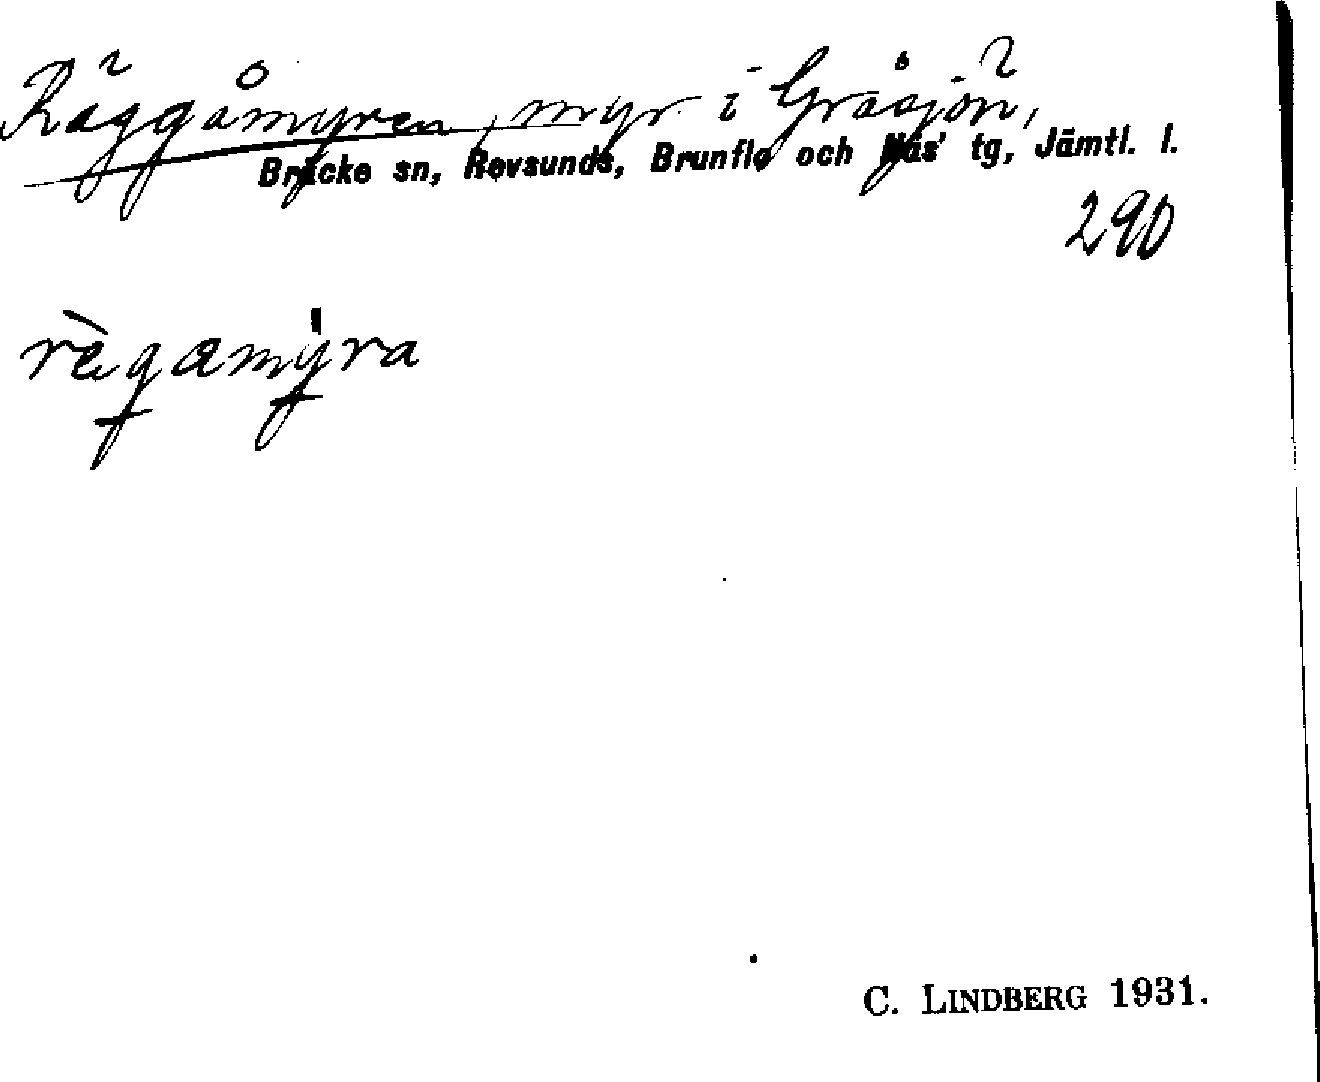 Räggåmyren, myr i Gråsjön,
Bräcke sn, Revsunds, Brunflo och Näs' tg, Jämtl. l.
290
règamýra
C. LINDBERG 1931.